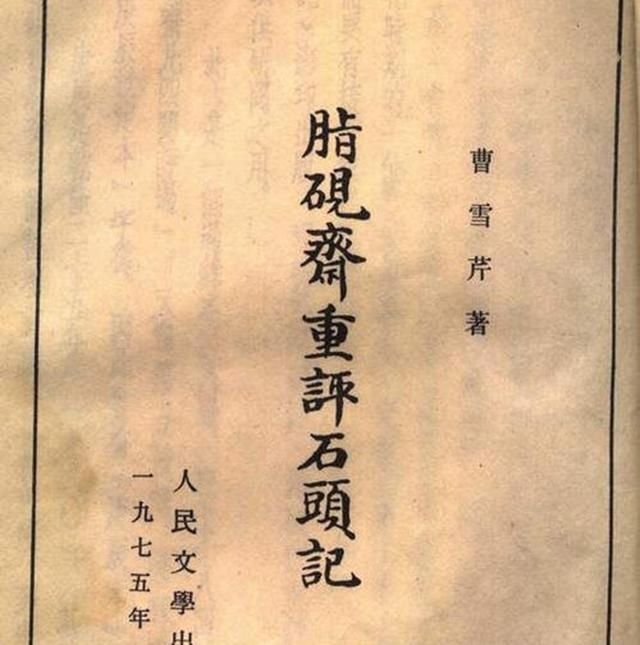 曹雪芹著
脂硯齋重評石頭記
人民文學出
一九七五年